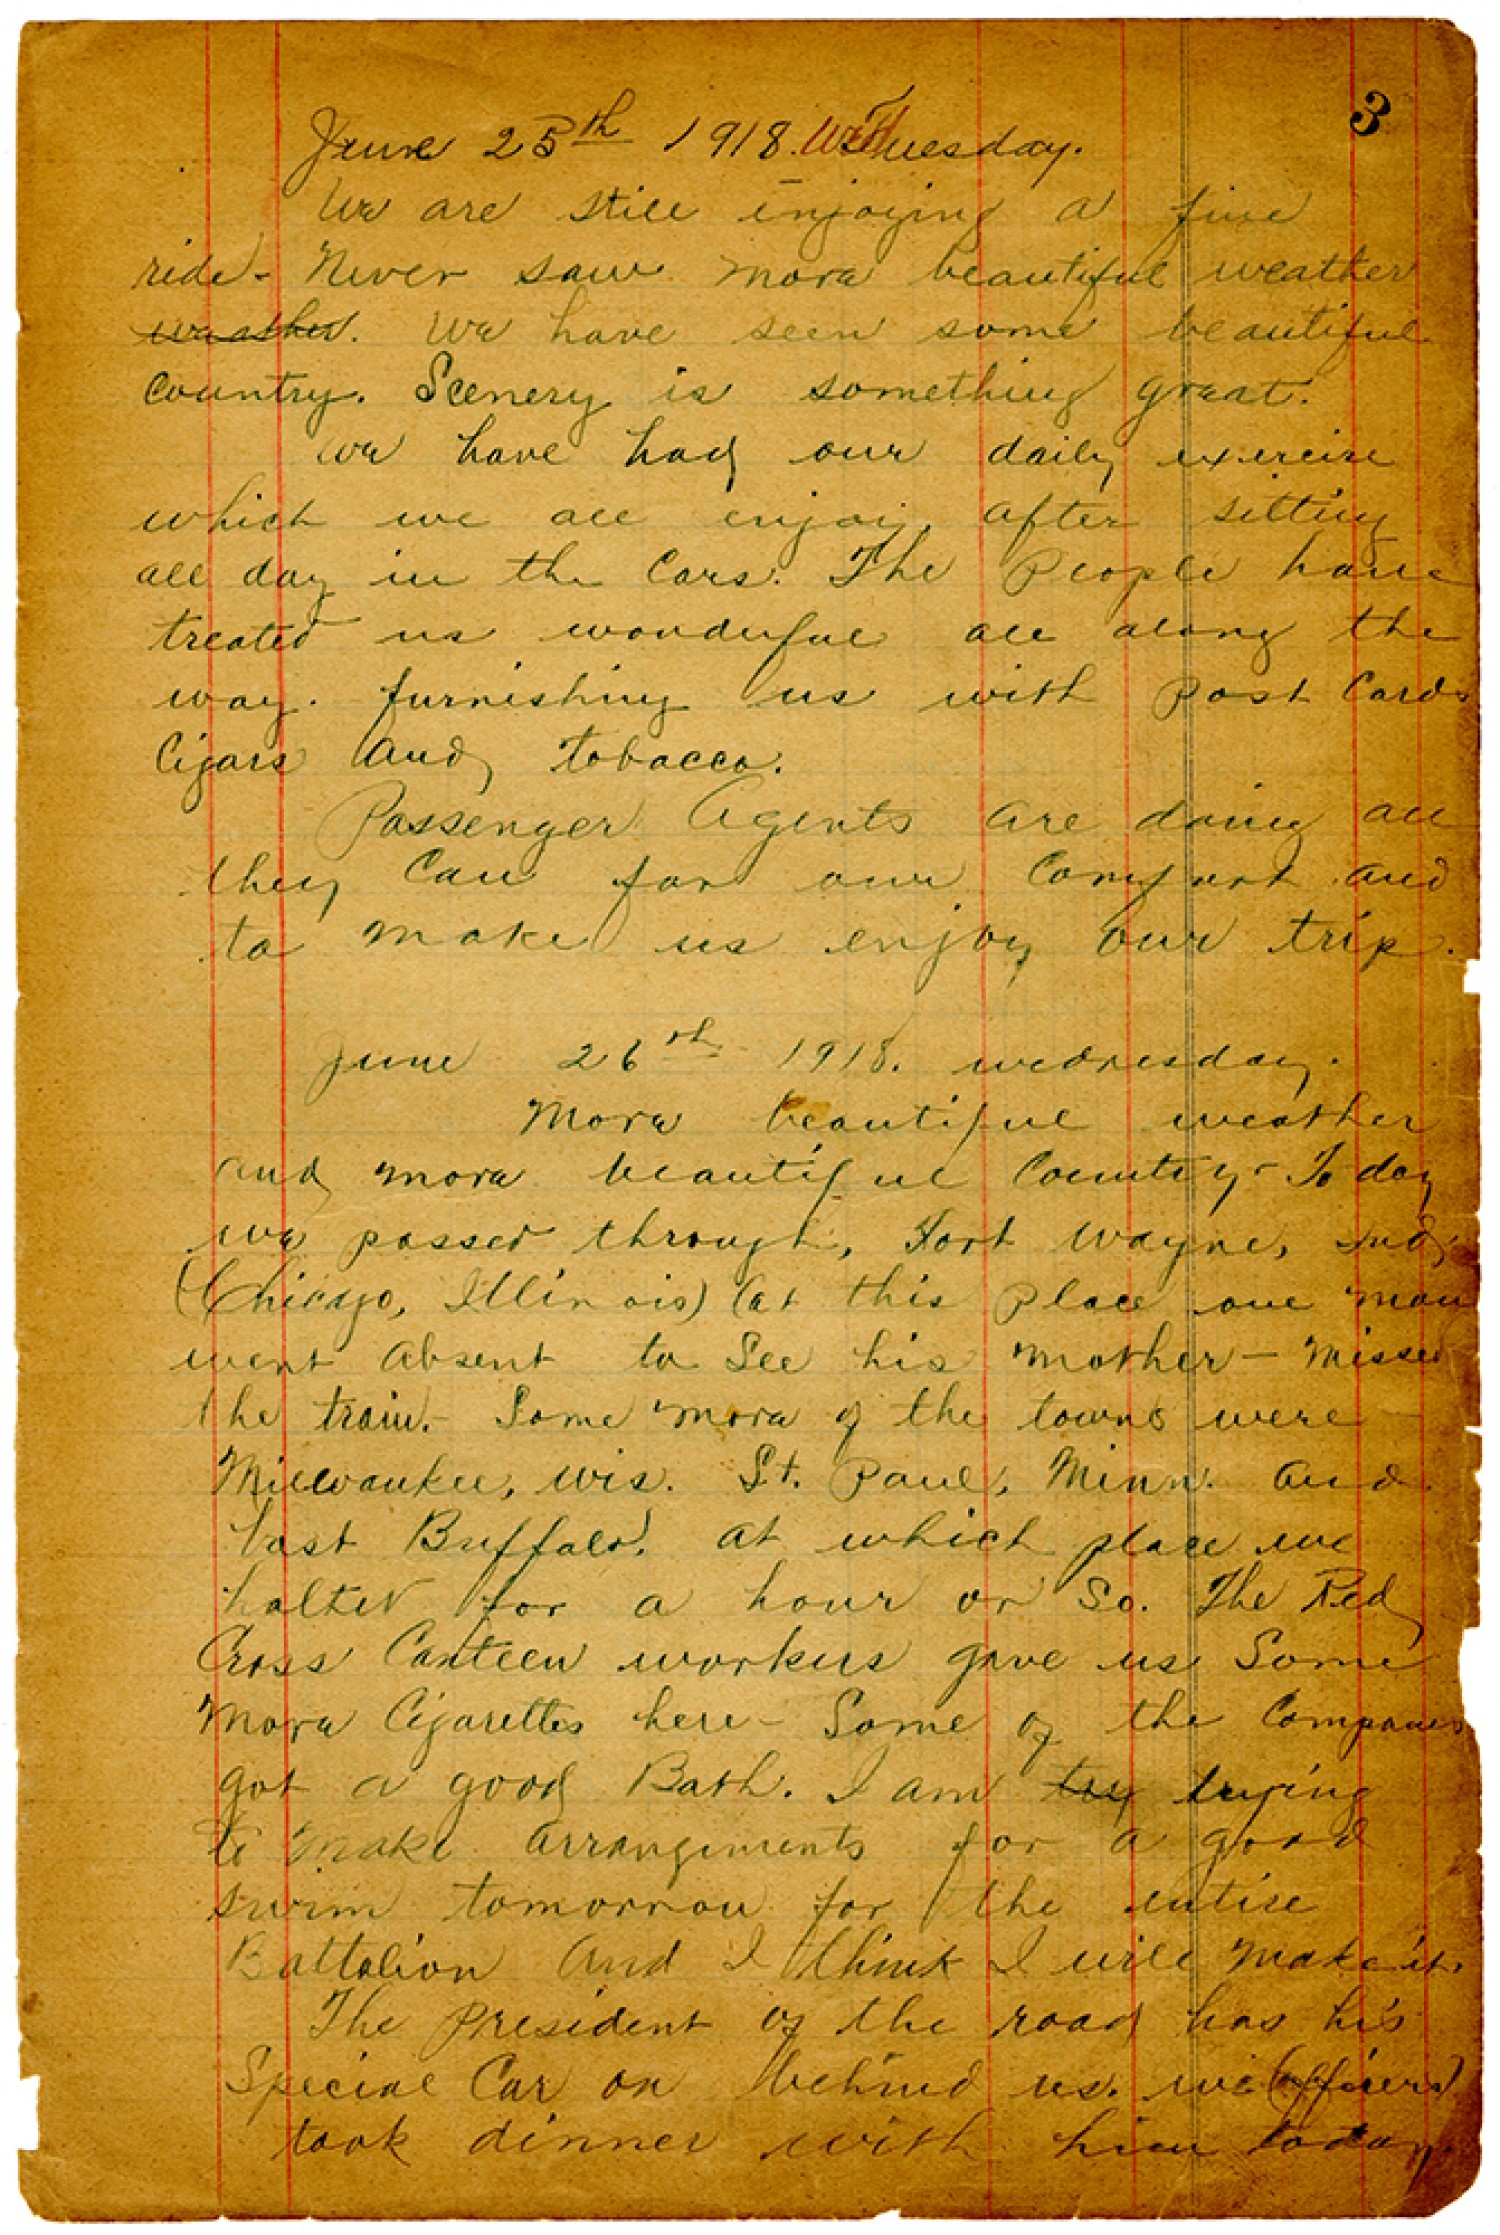 3
June 25th 1918. Tuesday.
We are still enjoying a fine
ride - Never saw more beautiful weather
weather. We have seen some beautiful
Country. Scenery is something great.
We have had our daily exercise
which we all enjoy, after sitting
all day in the Cars. The People have
treated us wonderful all along the
way. furnishing us with Post Cards
Cigars and tobacco.
Passenger Agents are doing all
they Can for our Comfort and
to make us enjoy our trip.
June 26th 1918. Wednesday.
More beautiful weather
and more beautiful Country - To day
we passed through, Fort Wayne, Ind,
(Chicago, Illinois) (at this place one man
went absent to See his mother - Missed
the train. - Some more of the towns were -
Milwaukee, Wis. St. Paul, Minn. and
last Buffalo. at which place we
halted for a hour or So. The Red
Cross Canteen workers gave us Some
more Cigarettes here - Some of the Companies
got a good Bath. I am try trying
to make arrangements for a good
swim tomorrow for the entire
Battalion and I think I will make it.
The President of the road has his
Special Car on behind us. we (officers)
took dinner with him today.